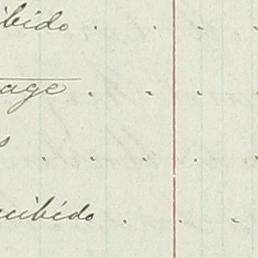 ibido
age
s
cibido